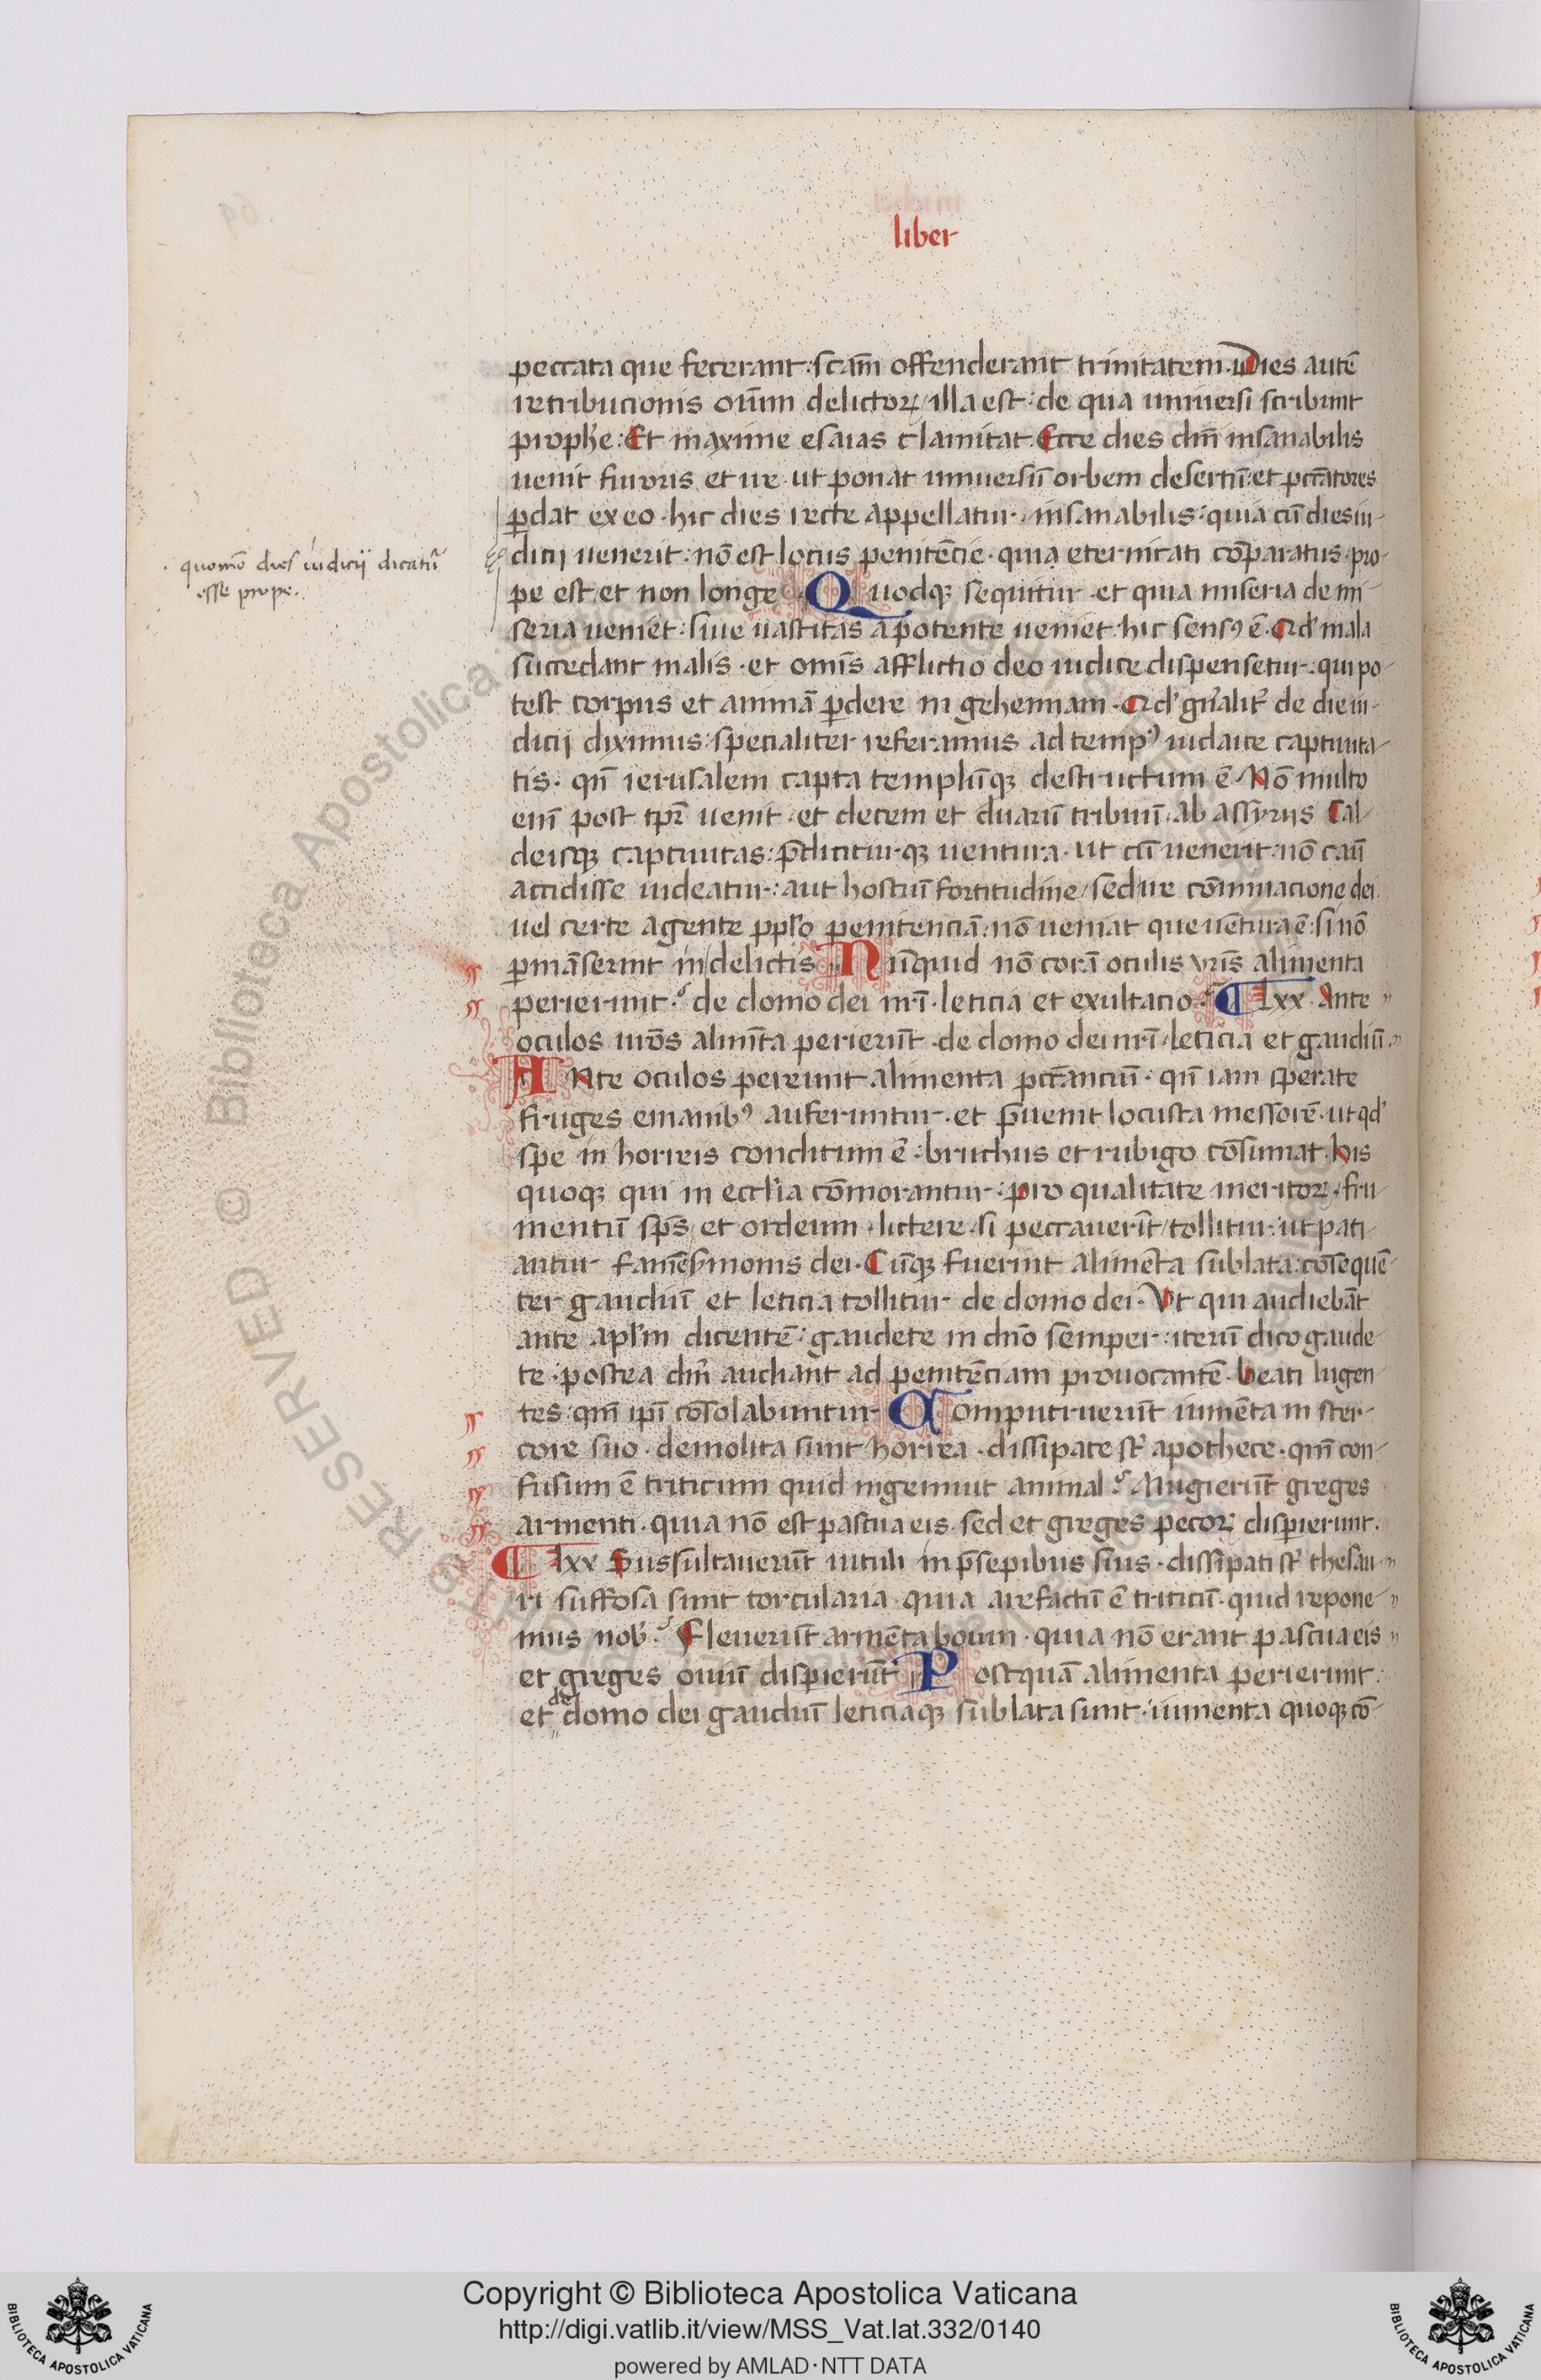 liber
peccata que fecerant: scām offenderant trinitatem. Dies autē
retribucionis oīum delictoꝝ / illa est: de qua uniuersi scribunt
prophē: Et maxime esaias clamitat. Ecce dies dn̄i insanabilis
uenit furoris et ire. ut ponat uniuersū orbem desertū: et pccātores
ꝑdat ex eo. hic dies recte appellatur. insanabilis: quia cū dies iu-
dicij uenerit: nō est locus penitēcie. quia eternitati cōparatus. pro-
quomō dies iudicij dicatur̄
esse prope.
pe est et non longe Quodqꝫ sequitur. et quia miseria de mi-
seria ueniet: siue uastitas a potente ueniet: hic sensꝯ ē. Qd' mala
succedant malis. et omīs afflictio deo iudice dispensetur. qui po-
test corpus et animā ꝑdere in gehennam. Qd' gn̄alit̄ de die iu-
dicij diximus: specialiter referamus ad tempꝯ iudaice captiuita-
tis. qn̄ ierusalem capta templūqꝫ destructum ē. Nō multo
enī post tꝑe uenit et decem et duarū tribuū. ab assyrijs Cal-
deisqꝫ captiuitas: p̄diciturqꝫ uentura. ut cū uenerit: nō casū
accidisse uideatur: aut hostiū fortitudine / sed ire cōminacione dei.
uel certe agente ppl'o penitenciā: nō ueniat que uētura ē: si nō
ꝑmāserint in delictis. Nūquid nō corā oculis vrīs alimenta
perierunt. de domo dei nrī. leticia et exultacio. lxx. Ante
oculos urōs alimēta perierūt. de domo dei nrī / leticia et gaudiū.
ANte oculos pereunt alimenta pccāntiū. qn̄ iam sperate
fruges e manibꝯ auferuntur. et p̄uenit locusta messorē. ut qd'
spe in horreis conditum ē: bruchus et rubigo cōsumat. his
quoqꝫ qui in eccl'ia cōmorantur: pro qualitate meritoꝝ. fru-
mentū sp̄s et ordeum. lictere. si peccauerīt / tollitur. ut pati-
antur famē sermonis dei. Cūqꝫ fuerint alimēta sublata: cōsequē-
ter gaudiū et leticia tollitur de domo dei. Vt qui audiebāt
ante apl'm dicentē: gaudete in dnō semper: iterū dico gaude-
te: postea dn̄m audiant ad penitēciam prouocantē. beati lugen-
tes: qm̄ ipī cōsolabuntur Computruerūt iumēta in ster-
core suo. demolita sunt horrea. dissipate st̄ apothece. qm̄ con-
fusum ē triticum quid ingemuit animal. Mugierūt greges
armenti. quia nō est pascua eis. sed et greges pecoꝝ disperierunt.
lxx Sussultauerūt uituli in p̄sepibus suis. dissipati st̄ thesau-
ri suffosa sunt torcularia. quia arefactū ē triticū. quid repone-
mus nob'. Fleuerūt armēta bouum. quia nō erant pascua eis
et greges ouiū disperierūt Postquā alimenta perierunt:
et de domo dei gaudiū leticiaqꝫ sublata sunt: iumenta quoqꝫ cō-
Copyright © Biblioteca Apostolica Vaticana
http://digi.vatlib.it/view/MSS_Vat.lat.332/0140
powered by AMLAD·NTT DATA
BIBLIOTECA APOSTOLICA VATICANA
BIBLIOTECA APOSTOLICA VATICANA